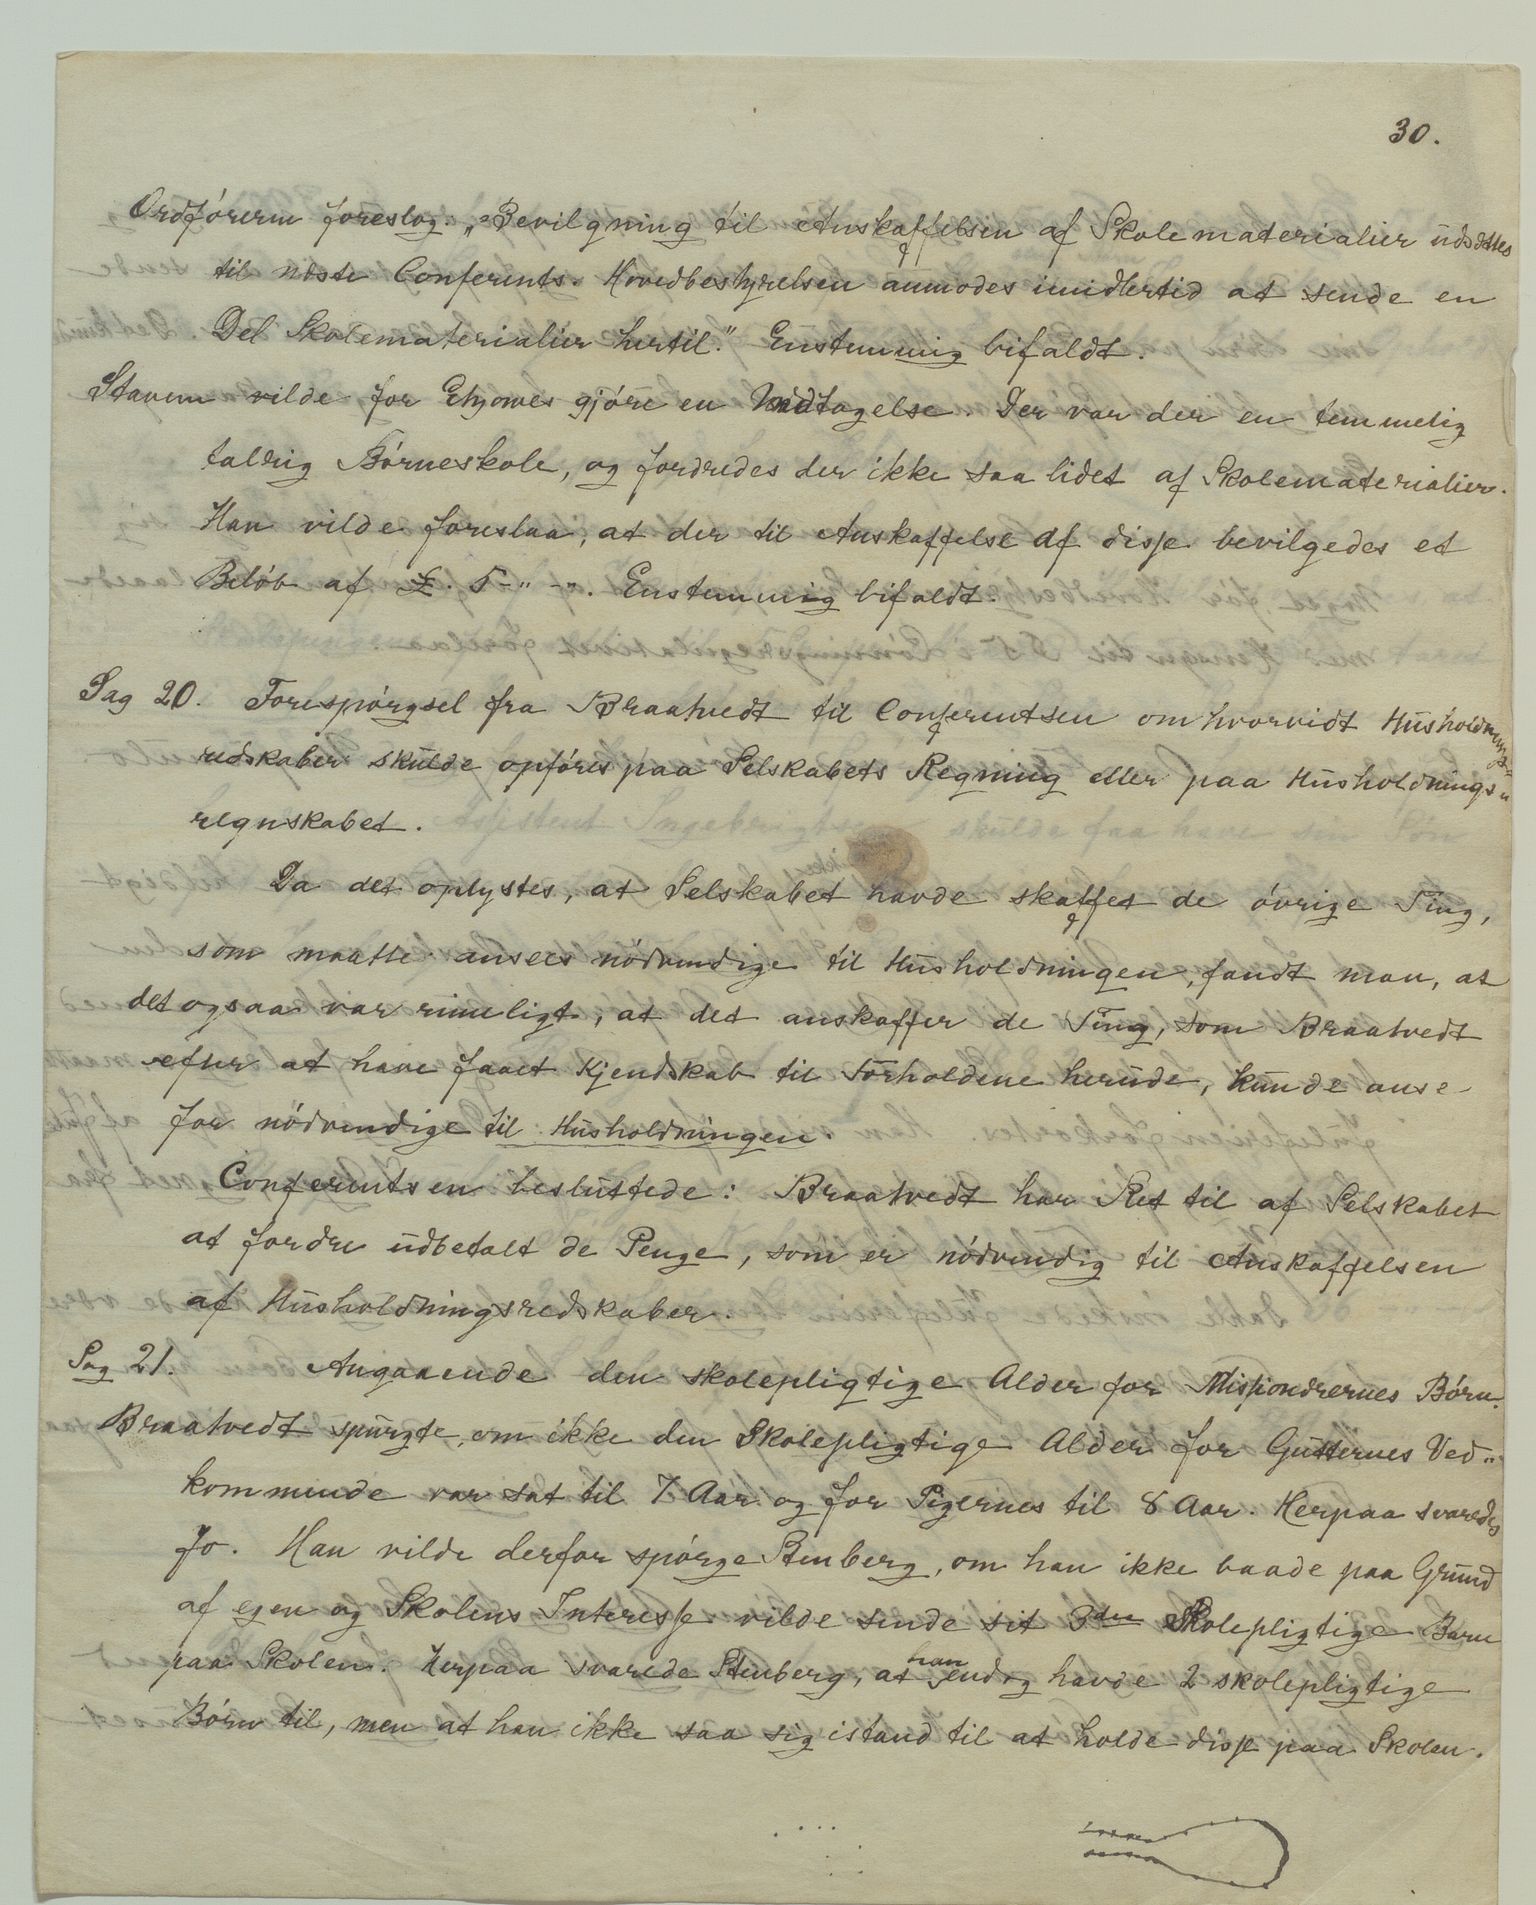 30.
Ordføreren foreslog: „Bevilgning til Anskaffelsen af Skolematerialier udsættes
til næste Conferents. Hovedbestyrelsen anmodes imidlertid at sende en
Del Skolematerialier hertil." Enstemmig bifaldt.
Stavem vilde for Ekjowes gjøre en Undtagelse. Der var der en temmelig
talrig Børneskole, og fordredes der ikke saa lidet af Skolematerialier.
Han vilde foreslaa, at der til Anskaffelse af disse bevilgedes et
Beløb af £. 5-"-". Enstemmig bifaldt.
Sag 20. Forespørgsel fra Braatvedt til Conferentsen om hvorvidt Husholdnings-
redskaber skulde opføres paa Selskabets Regning eller paa Husholdnings-
regnskabet.
Da det oplystes, at Selskabet havde skaffet de øvrige Ting,
som maatte ansees nødvendige til Husholdningen, fandt man, at
det ogsaa var rimeligt, at det anskaffer de Ting, som Braatvedt
efter at have faaet Kjendskab til Forholdene herude, kunde anse
for nødvendige til Husholdningen
Conferentsen besluttede: Braatvedt har Ret til af Selskabet
at fordre udbetalt de Penge, som er nødvendig til Anskaffelsen
af Husholdningsredskaber.
Sag 21. Angaaende den skolepligtige Alder for Missionærernes Børn.
Braatvedt spurgte, om ikke den Skolepligtige Alder for Gutternes Ved-
kommende var sat til 7 Aar og for Pigernes til 8 Aar. Herpaa svaredes
Jo. Han vilde derfor spørge Stenberg, om han ikke baade paa Grund
af egen og Skolens Interesse vilde sende sit 3die Skolepligtige Barn
paa Skolen. Herpaa svarede Stenberg, at han endog havde 2 skolepligtige
Børn til, men at han ikke saa sig istand til at holde disse paa Skolen.